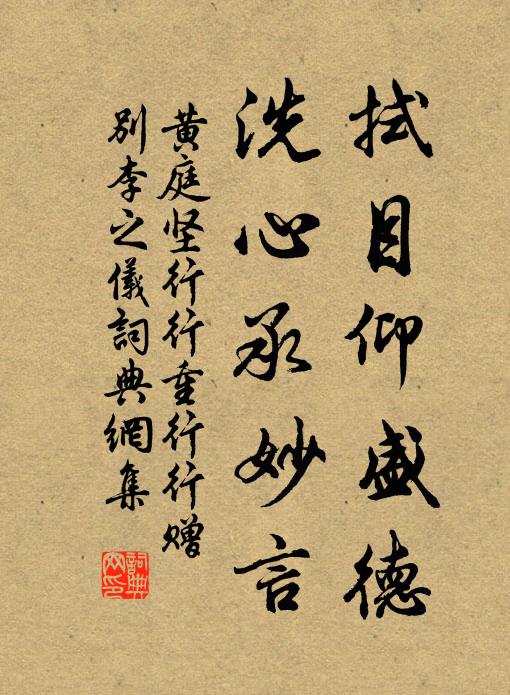 拭目仰盛德
洗心承妙言
黄庭坚行行重行行赠
别李之儀詞典網集
詞典網印